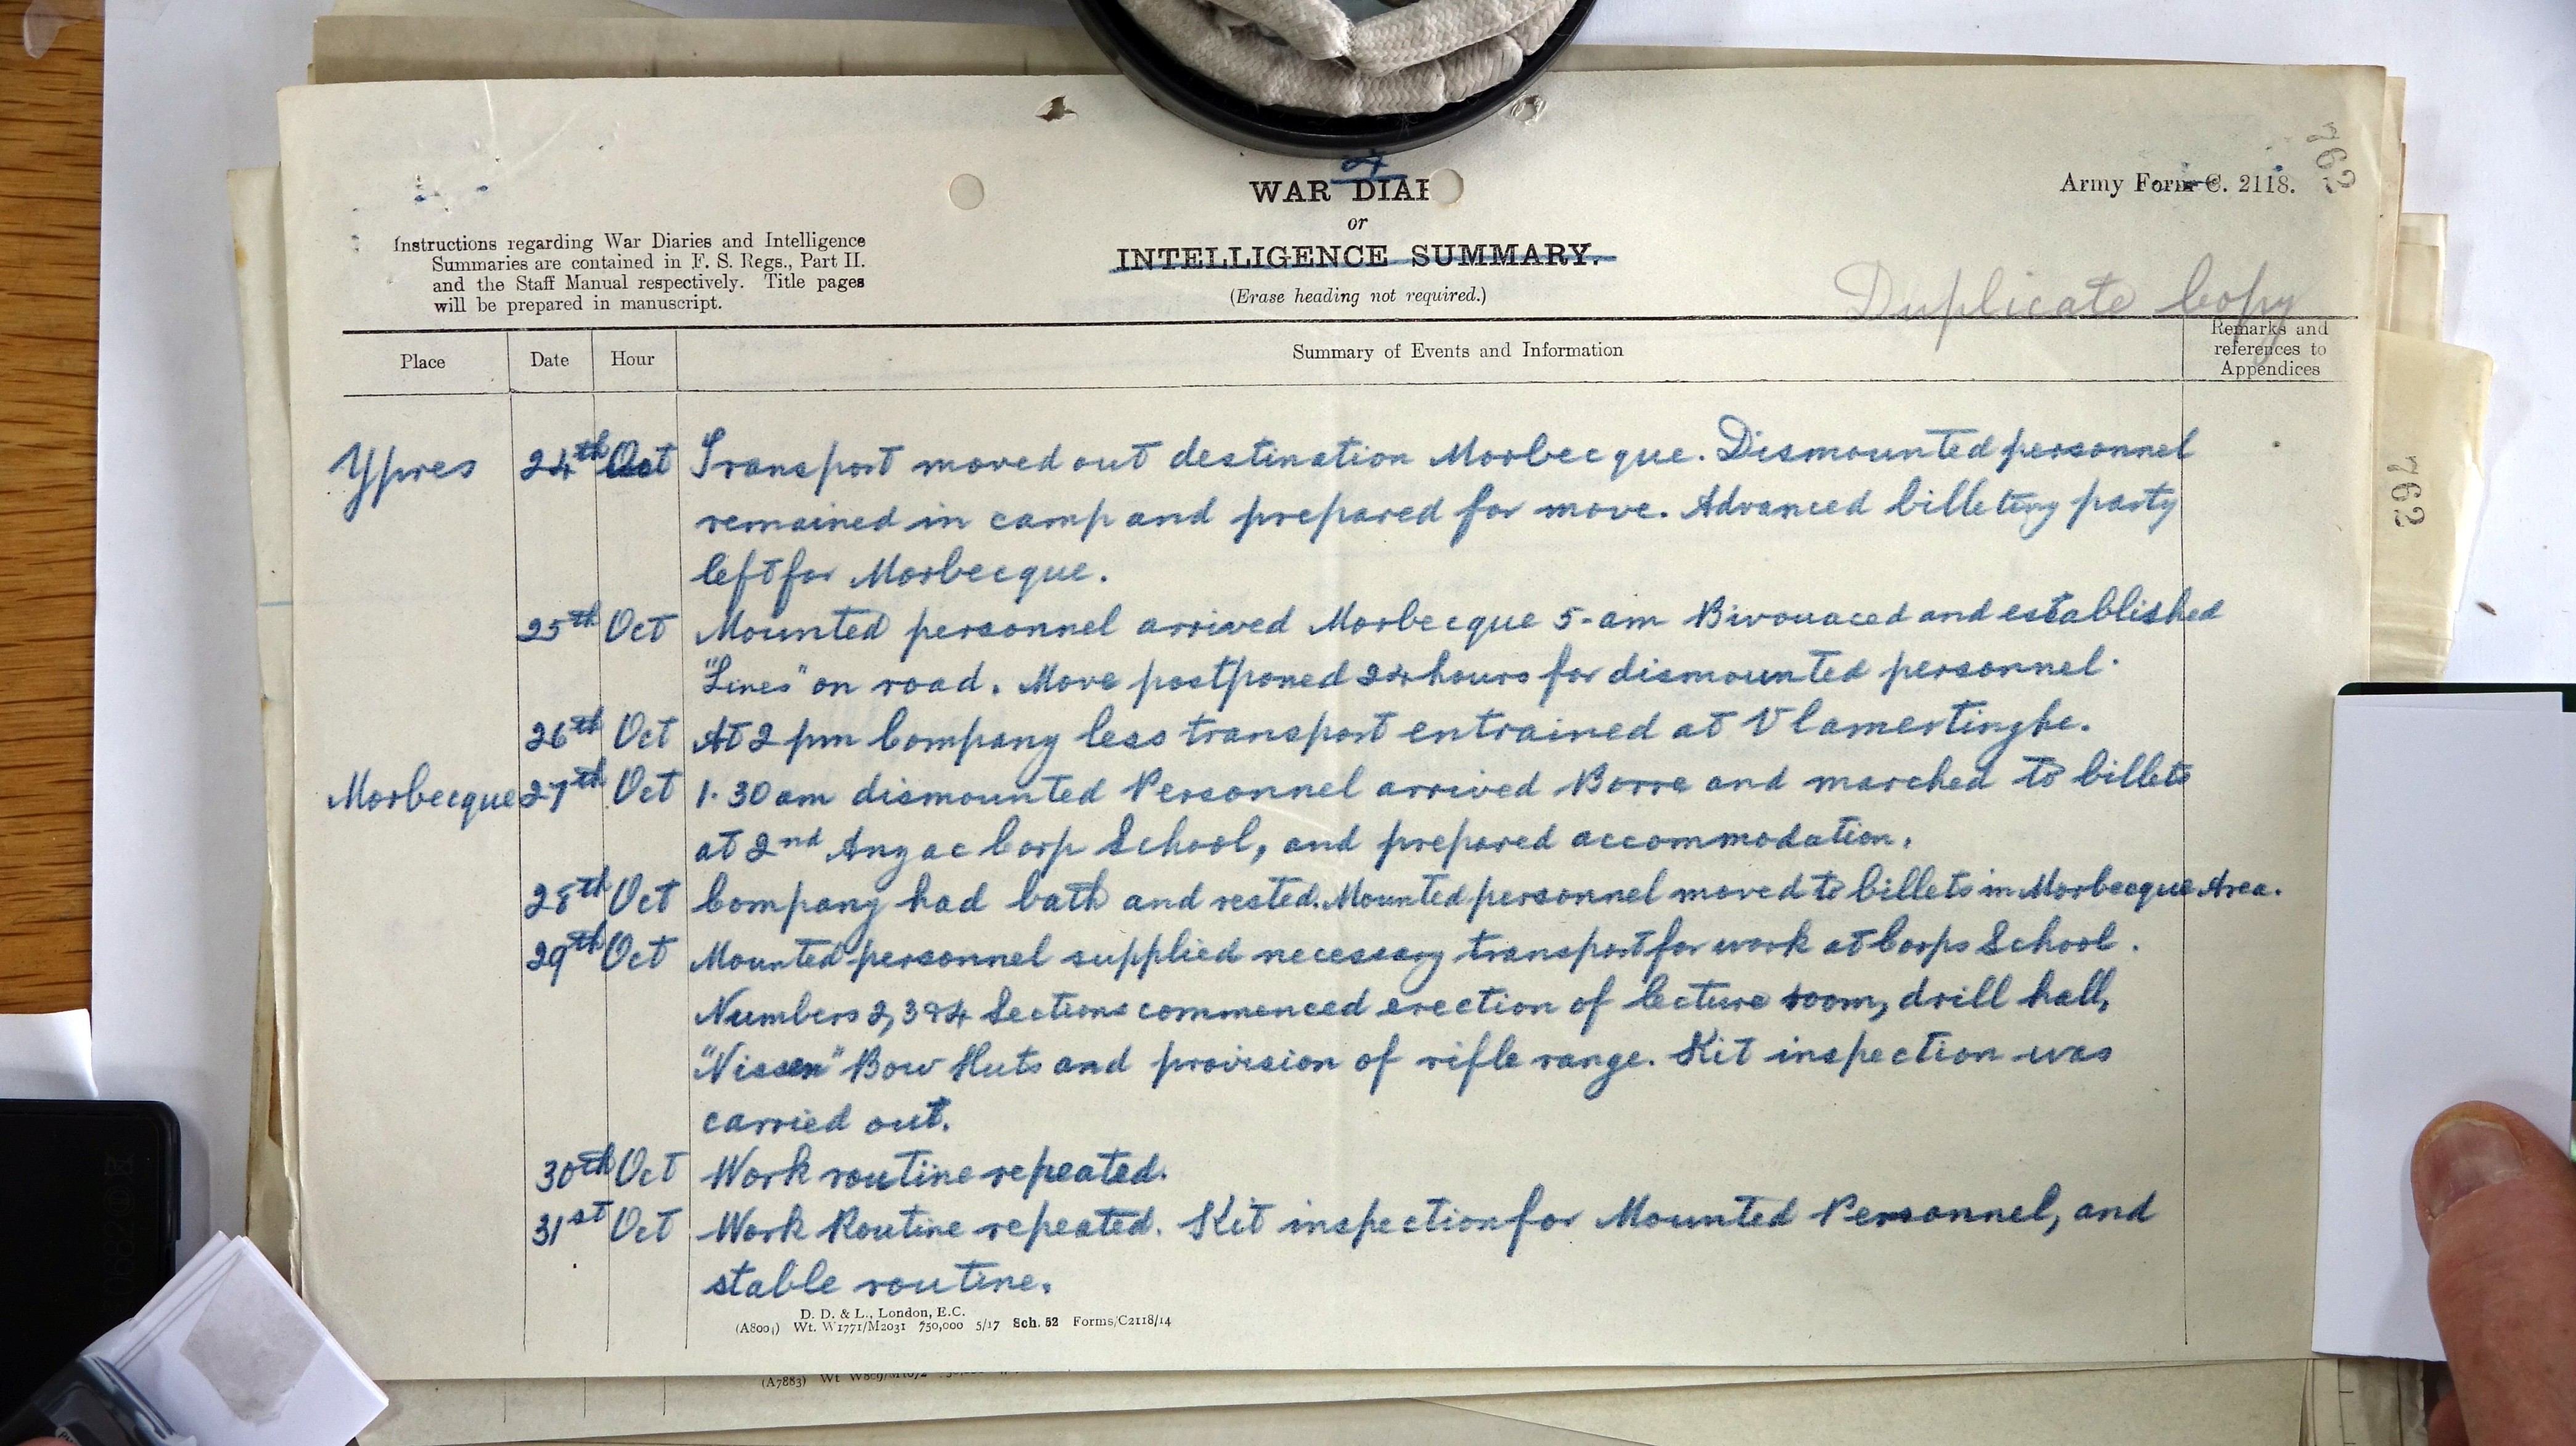 4
WAR DIAR
or
INTELLIGENCE SUMMARY.
(Erase heading not required.)
Army Form C. 2118.
762
Instructions regarding War Diaries and Intelligence
Summaries are contained in F. S. Regs., Part II.
and the Staff Manual respectively. Title pages
will be prepared in manuscript.
Duplicate Copy
Place Date Hour Summary of Events and Information Remarks and
references to
Appendices
Ypres 24th Oct Transport moved out destination Morbecque. Dismounted personnel
remained in camp and prepared for move. Advanced billeting party
left for Morbecque.
25th Oct Mounted personnel arrived Morbecque 5-am Bivouaced and established
"Lines" on road. Move postponed 24 hours for dismounted personnel.
26th Oct At 2 pm Company less transport entrained at Vlamertinghe.
Morbecque 27th Oct 1.30 am dismounted Personnel arrived Borre and marched to billets
at 2nd Anzac Corp School, and prepared accommodation.
28th Oct Company had bath and rested. Mounted personnel moved to billets in Morbecque Area.
29th Oct Mounted personnel supplied necessary transport for work at Corps School.
Numbers 2, 3 & 4 Sections commenced erection of lecture room, drill hall,
"Nissen" Bow Huts and provision of rifle range. Kit inspection was
carried out.
30th Oct Work routine repeated.
31st Oct Work Routine repeated. Kit inspection for Mounted Personnel, and
stable routine.
D. D. & L., London, E.C.
(A8001) Wt. W1771/M2031 750,000 5/17 Sch. 52 Forms/C2118/14
762
(A7883) Wt